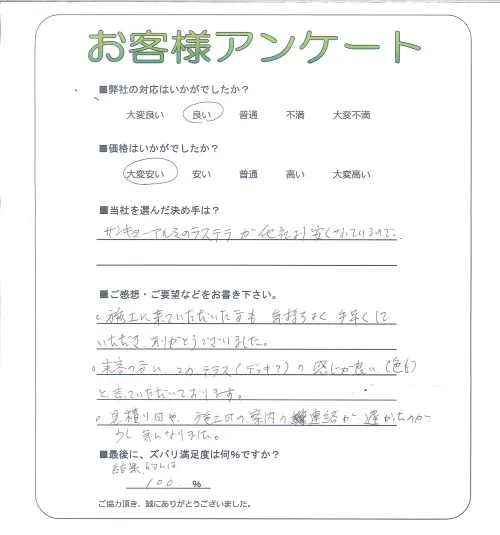 お客様アンケート
■弊社の対応はいかがでしたか？
大変良い 良い 普通 不満 大変不満
■価格はいかがでしたか？
大変安い 安い 普通 高い 大変高い
■当社を選んだ決め手は？
サンキョーアルミのラステラが他社より安くなっているので.
■ご感想・ご要望などをお書き下さい。
○施工に来ていただいた方も 気持ちよく、手早くして
いただき、ありがとうございました。
○来客の方に、この、テラス(デッキ?)の感じが良い、(色も)
と言っていただいております。
○見積り日や、施工日の案内の連絡が 遅かったのが
少し気になりました。
■最後に、ズバリ満足度は何％ですか？
結果的には
100 %
ご協力頂き、誠にありがとうございました。